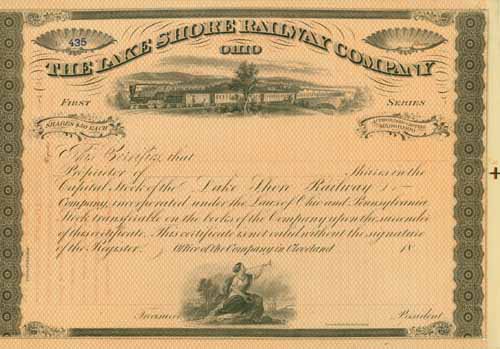 435
THE LAKE SHORE RAILWAY COMPANY
OHIO
FIRST SERIES
SHARES $50 EACH
This Certifies, that
Proprietor of Shares in the
Capital Stock of the Lake Shore Railway
Company, incorporated under the Laws of Ohio and Pennsylvania
Stock transferable on the books of the Company upon the surrender
of this certificate. This certificate is not valid without the signature
of the Register. Office of the Company in Cleveland 18
Treasurer President